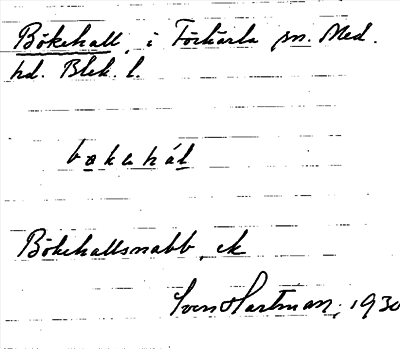 Bökehall, i Förkärla sn. Med.
hd. Blek. l.
bøkahál
Bökehallsnabb, ek
Sven Hartman, 1930